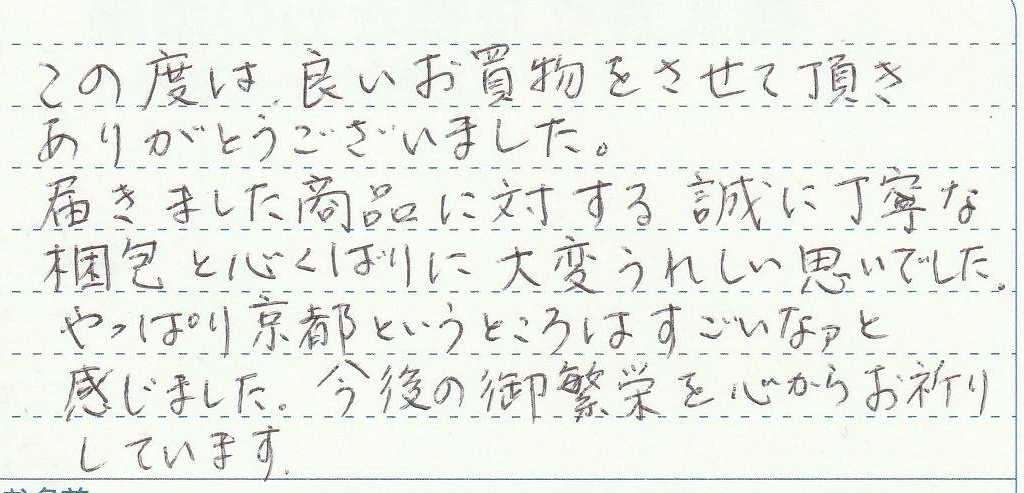 この度は、良いお買物をさせて頂き
ありがとうございました。
届きました商品に対する誠に丁寧な
梱包と心くばりに大変うれしい思いでした。
やっぱり京都というところはすごいなァと
感じました。今後の御繁栄を心からお祈り
しています。
お名前